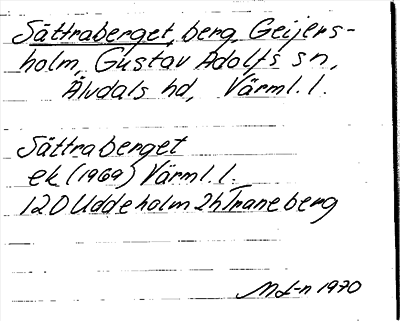 Sättraberget, berg, Geijers-
holm, Gustav Adolfs sn,
Älvdals hd, Värml. l.
Sättraberget
ek (1969) Värml. l.
12D Uddeholm 2h Traneberg
1970